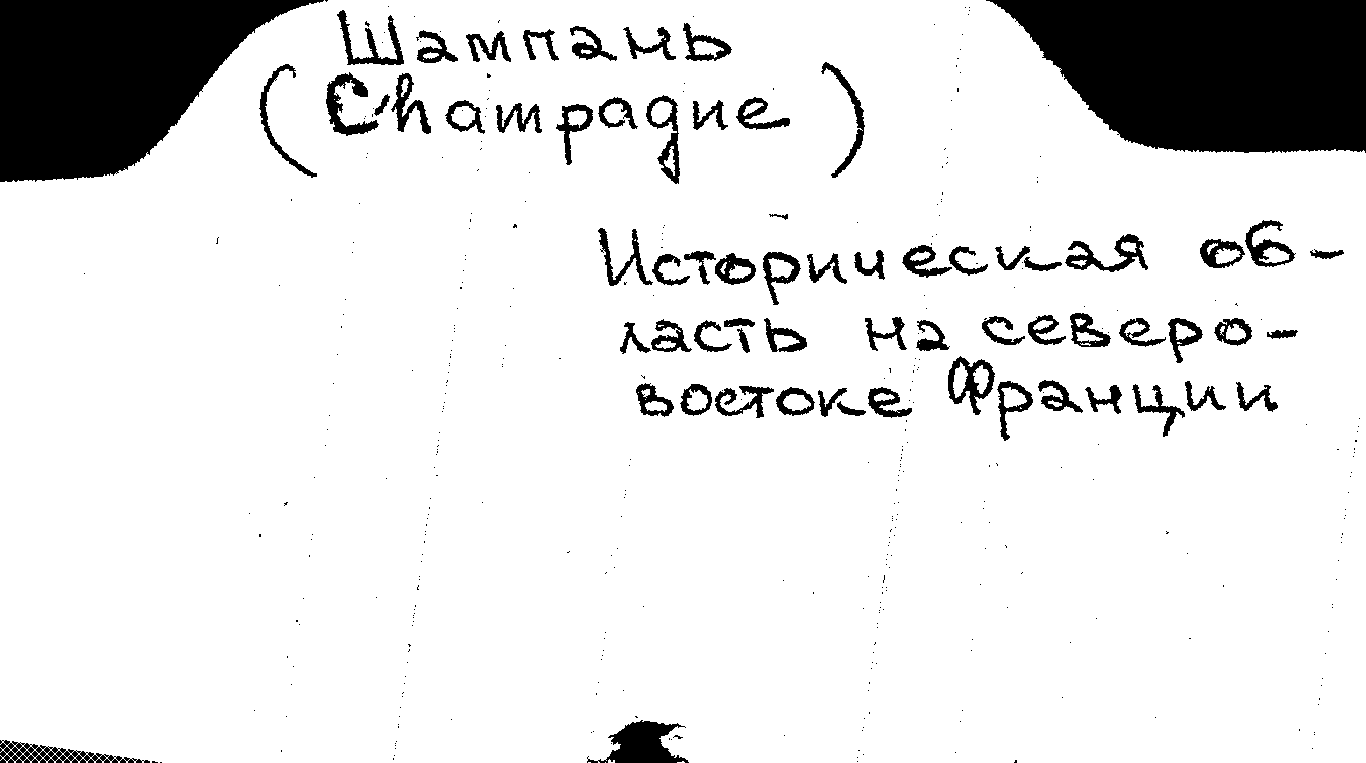 Шампань
(Champagne)
Историческая об-
ласть на северо-
востоке Франции